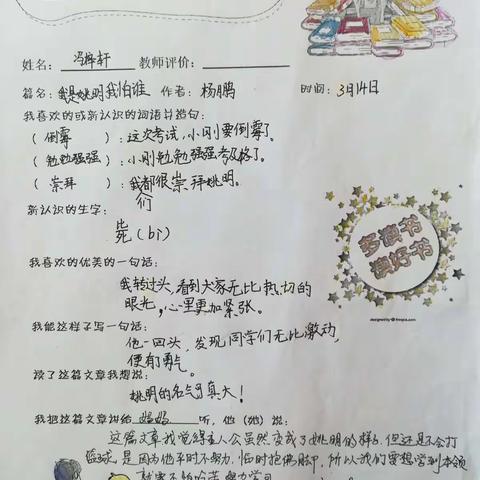 姓名：冯梓轩 教师评价：
篇名：我是姚明我怕谁 作者：杨鹏 时间：3月14日
我喜欢的或新认识的词语并造句：
（倒霉）：这次考试，小刚要倒霉了。
（勉勉强强）：小刚勉勉强强考及格了。
（崇拜）：我们都很崇拜姚明。
新认识的生字：
毙（bì）
多读书
读好书
designed by freepik.com
我喜欢的优美的一句话：
我转过头，看到大家无比热切的
眼光，心里更加紧张。
我能这样子写一句话：
他一回头，发现同学们无比激动，
便有勇气。
读了这篇文章我想说：
姚明的名气可真大！
我把这篇文章讲给妈妈听，他（她）说：
这篇文章我觉得主人公虽然变成了姚明的样子，但还是不会打
篮球，是因为他平时不努力，临时抱佛脚，所以我们要想学到本领
就要不怕吃苦，努力学习